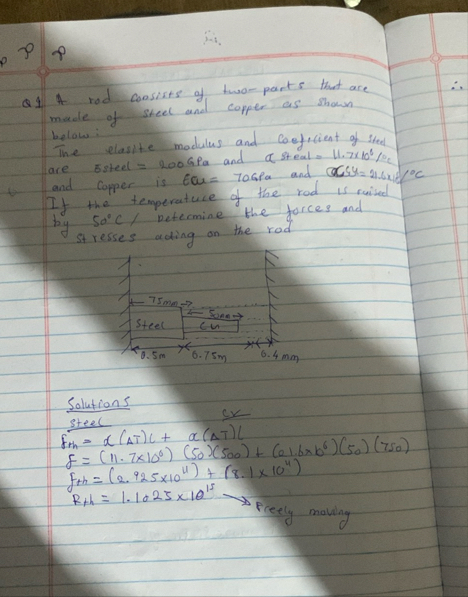 Q1 A rod consists of two parts that are
made of steel and copper as shown
below:
The elastic modulus and coefficient of steel
are Esteel = 200GPa and α steal = 11.7x10⁶/°C
and copper is Ecu = 70GPa and /°C
If the temperature of the rod is raised
by 50°C / Determine the forces and
stresses acting on the rod
75mm
50mm
Steel
Cu
0.5m 0.75m 0.4mm
Solutions
Steel
Cu
fth = α(ΔT)L + α(ΔT)L
f = (11.7x10⁶)(50)(500) + (21.6x10⁶)(50)(750)
fth = (2.925x10¹¹) + (8.1x10¹¹)
Rth = 1.1025x10¹⁵
Freely moving